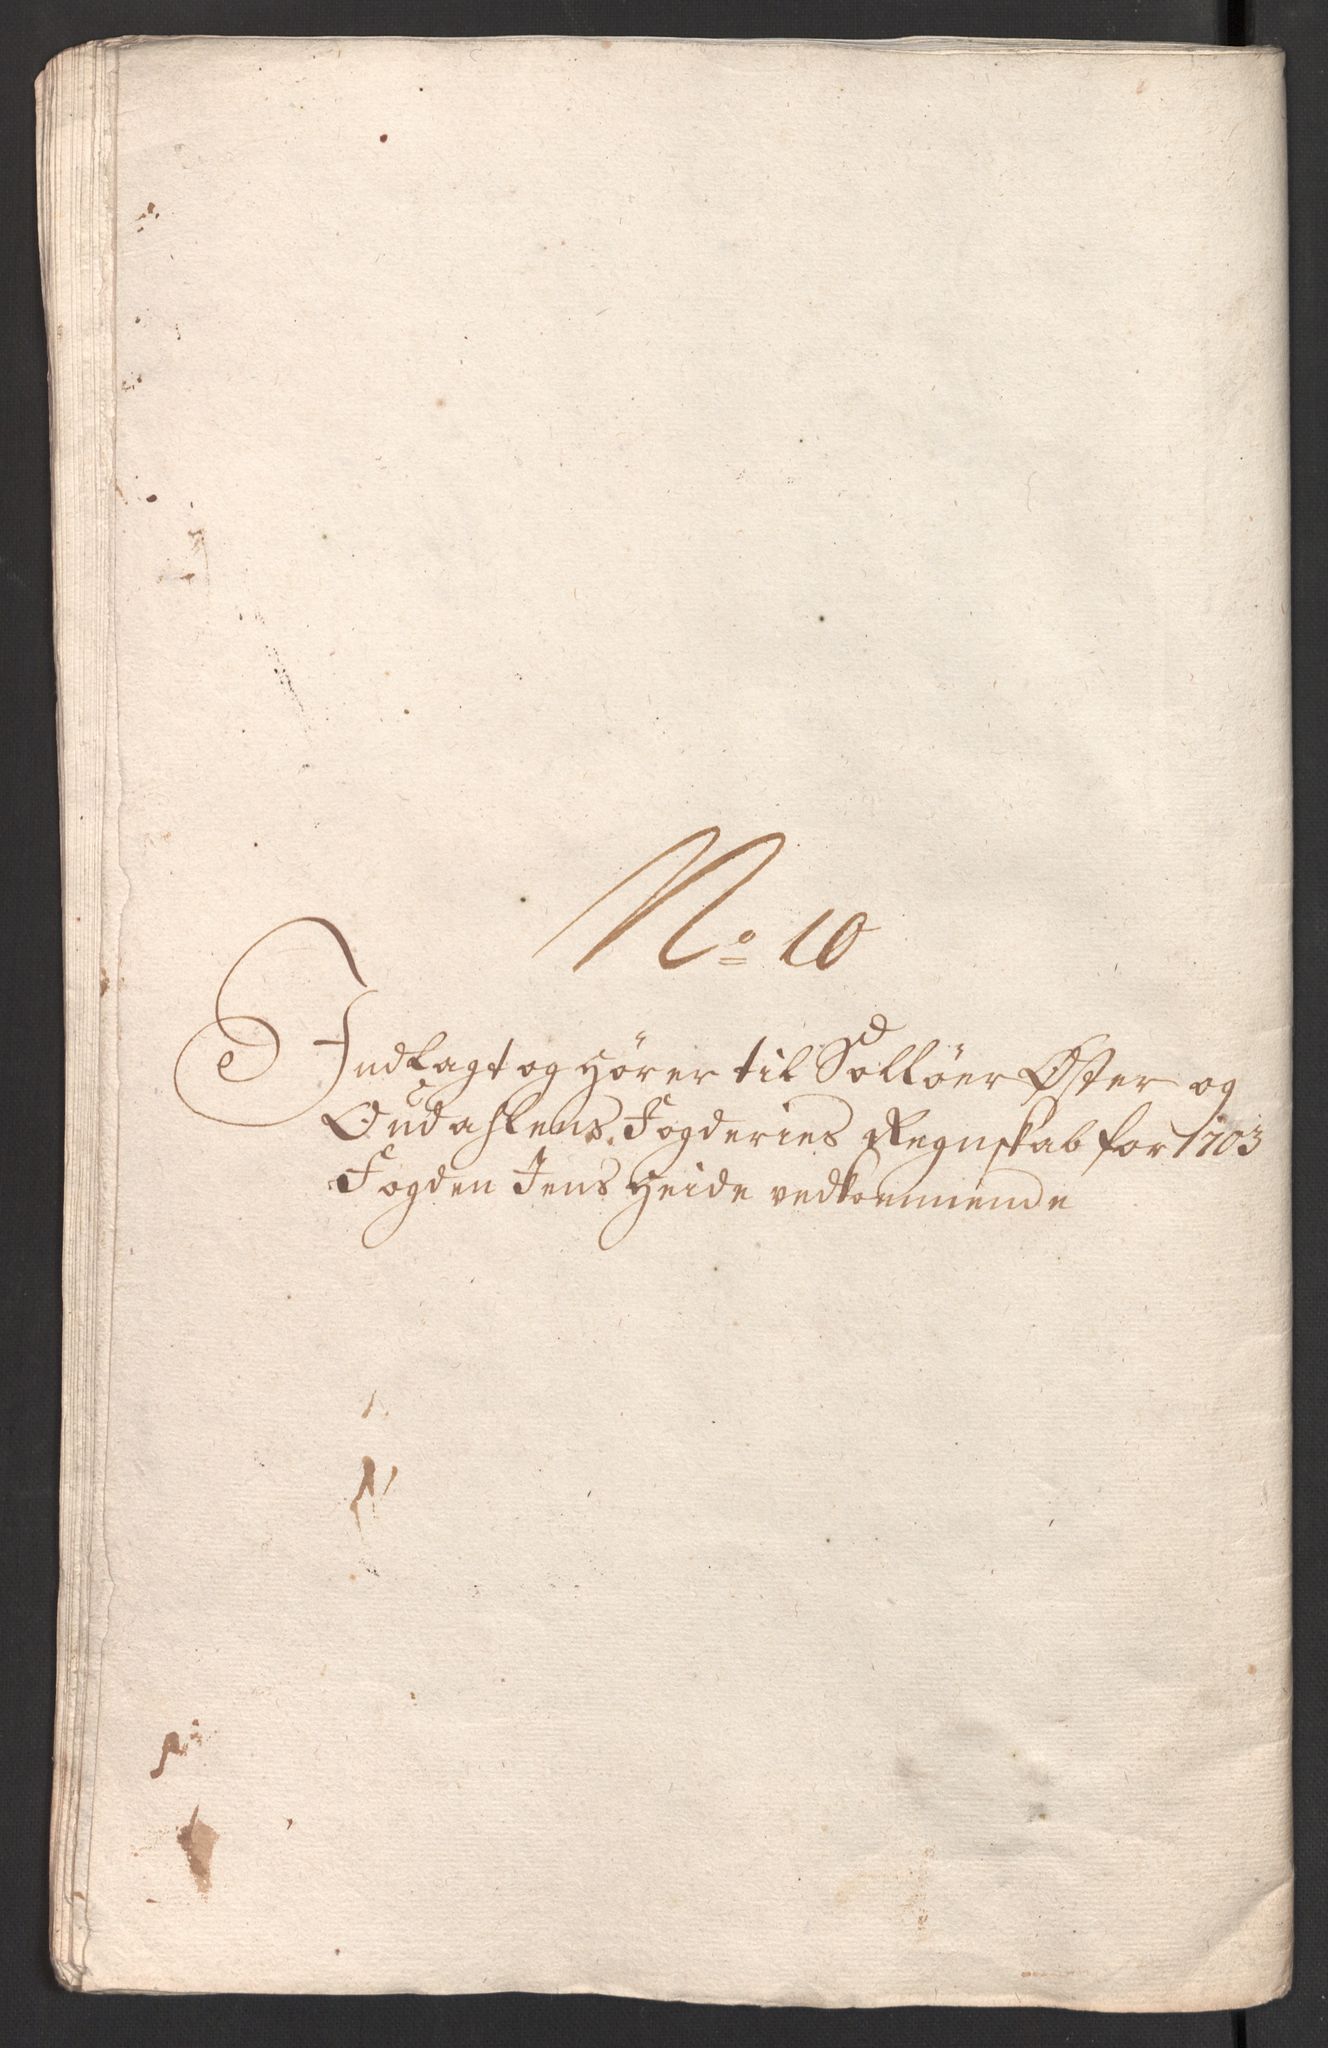 No 10
Indlagt og hörer til Solløer Øster og
Oudahlens Fogderies Regnskab for 1703
Fogden Jens Heide vedkommende